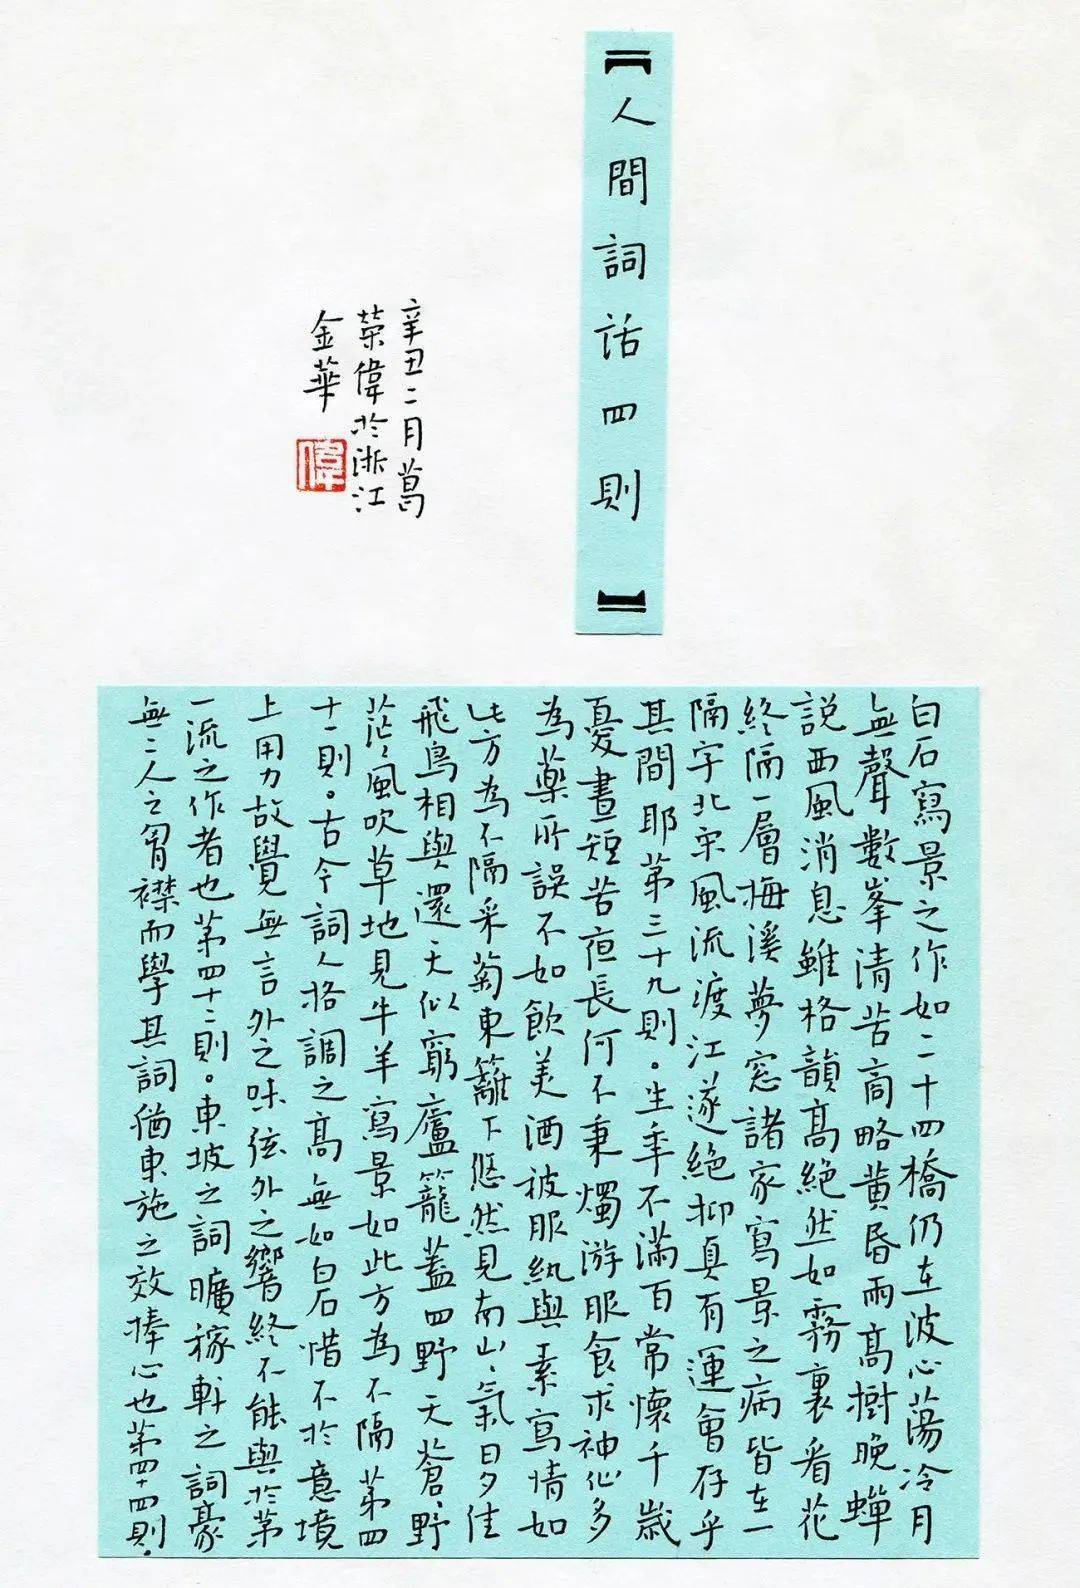 【人間詞話四則】
白石寫景之作如二十四橋仍在波心蕩冷月
無聲數峯清苦商略黄昏雨高樹晚蟬
説西風消息雖格韻高絕然如霧裏看花
終隔一層梅溪夢窓諸家寫景之病皆在一
隔字北宋風流渡江遂絕抑真有運會存乎
其間耶第三十九則。生年不滿百常懷千歲
憂晝短苦夜長何不秉燭游服食求神仙多
為藥所誤不如飲美酒被服紈與素寫情如
此方為不隔采菊東籬下悠然見南山、氣日夕佳
飛鳥相與還天似窮廬籠蓋四野天蒼、野
茫、風吹草地見牛羊寫景如此方為不隔第四
十一則。古今詞人格調之高無如白石惜不於意境
上用力故覺無言外之味弦外之響終不能與於第
一流之作者也第四十二則。東坡之詞曠稼軒之詞豪
無二人之胷襟而學其詞猶東施之效捧心也第四十四則。
辛丑二月葛
榮偉於浙江
金華
偉